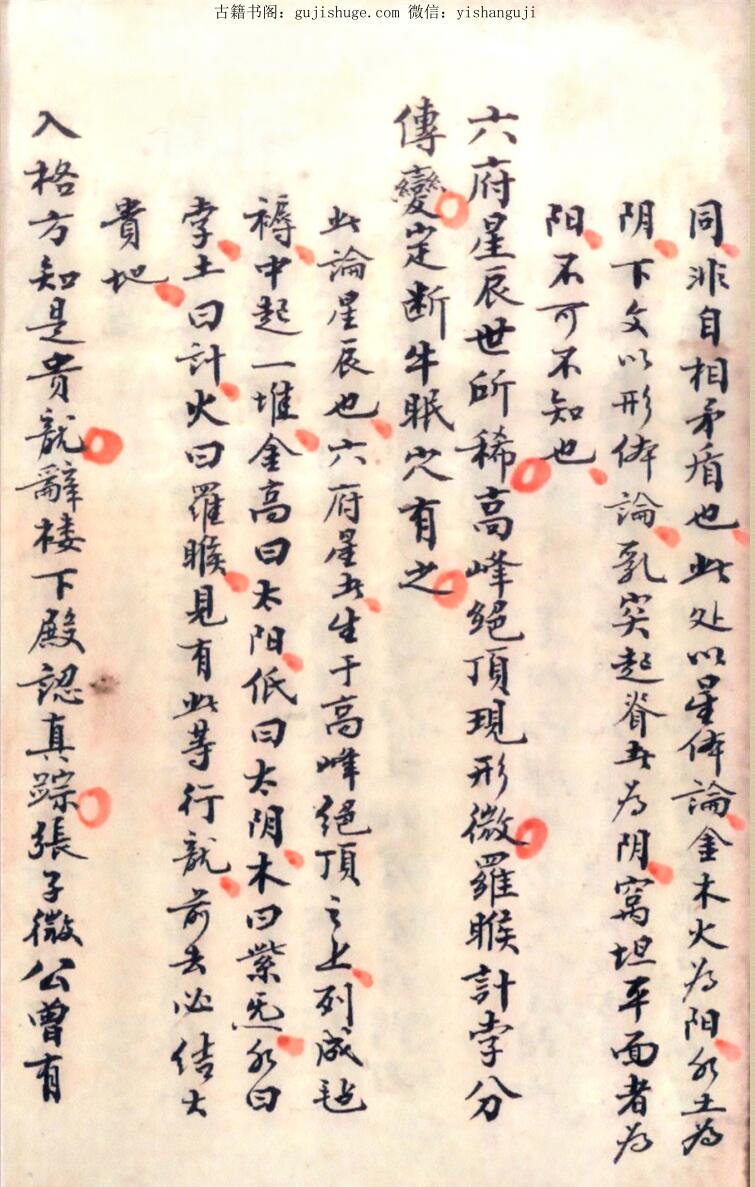 古籍书阁：gujishuge.com 微信：yishanguji
同非自相矛盾也此处以星体論金木火为阳水土为
阴下文以形体論乳突起脊者为阴窩坦平面者为
阳不可不知也
六府星辰世所稀高峰絕頂現形微羅睺計孛分
傳變定断牛眠穴有之
此論星辰也六府星者生于高峰絕頂之上列成毡
褥中起一堆金高曰太阳低曰太阴木曰紫炁水曰
孛土曰計火曰羅睺見有此等行龍前去必结大
貴地
入格方知是贵龍辭楼下殿認真踪張子微公曾有